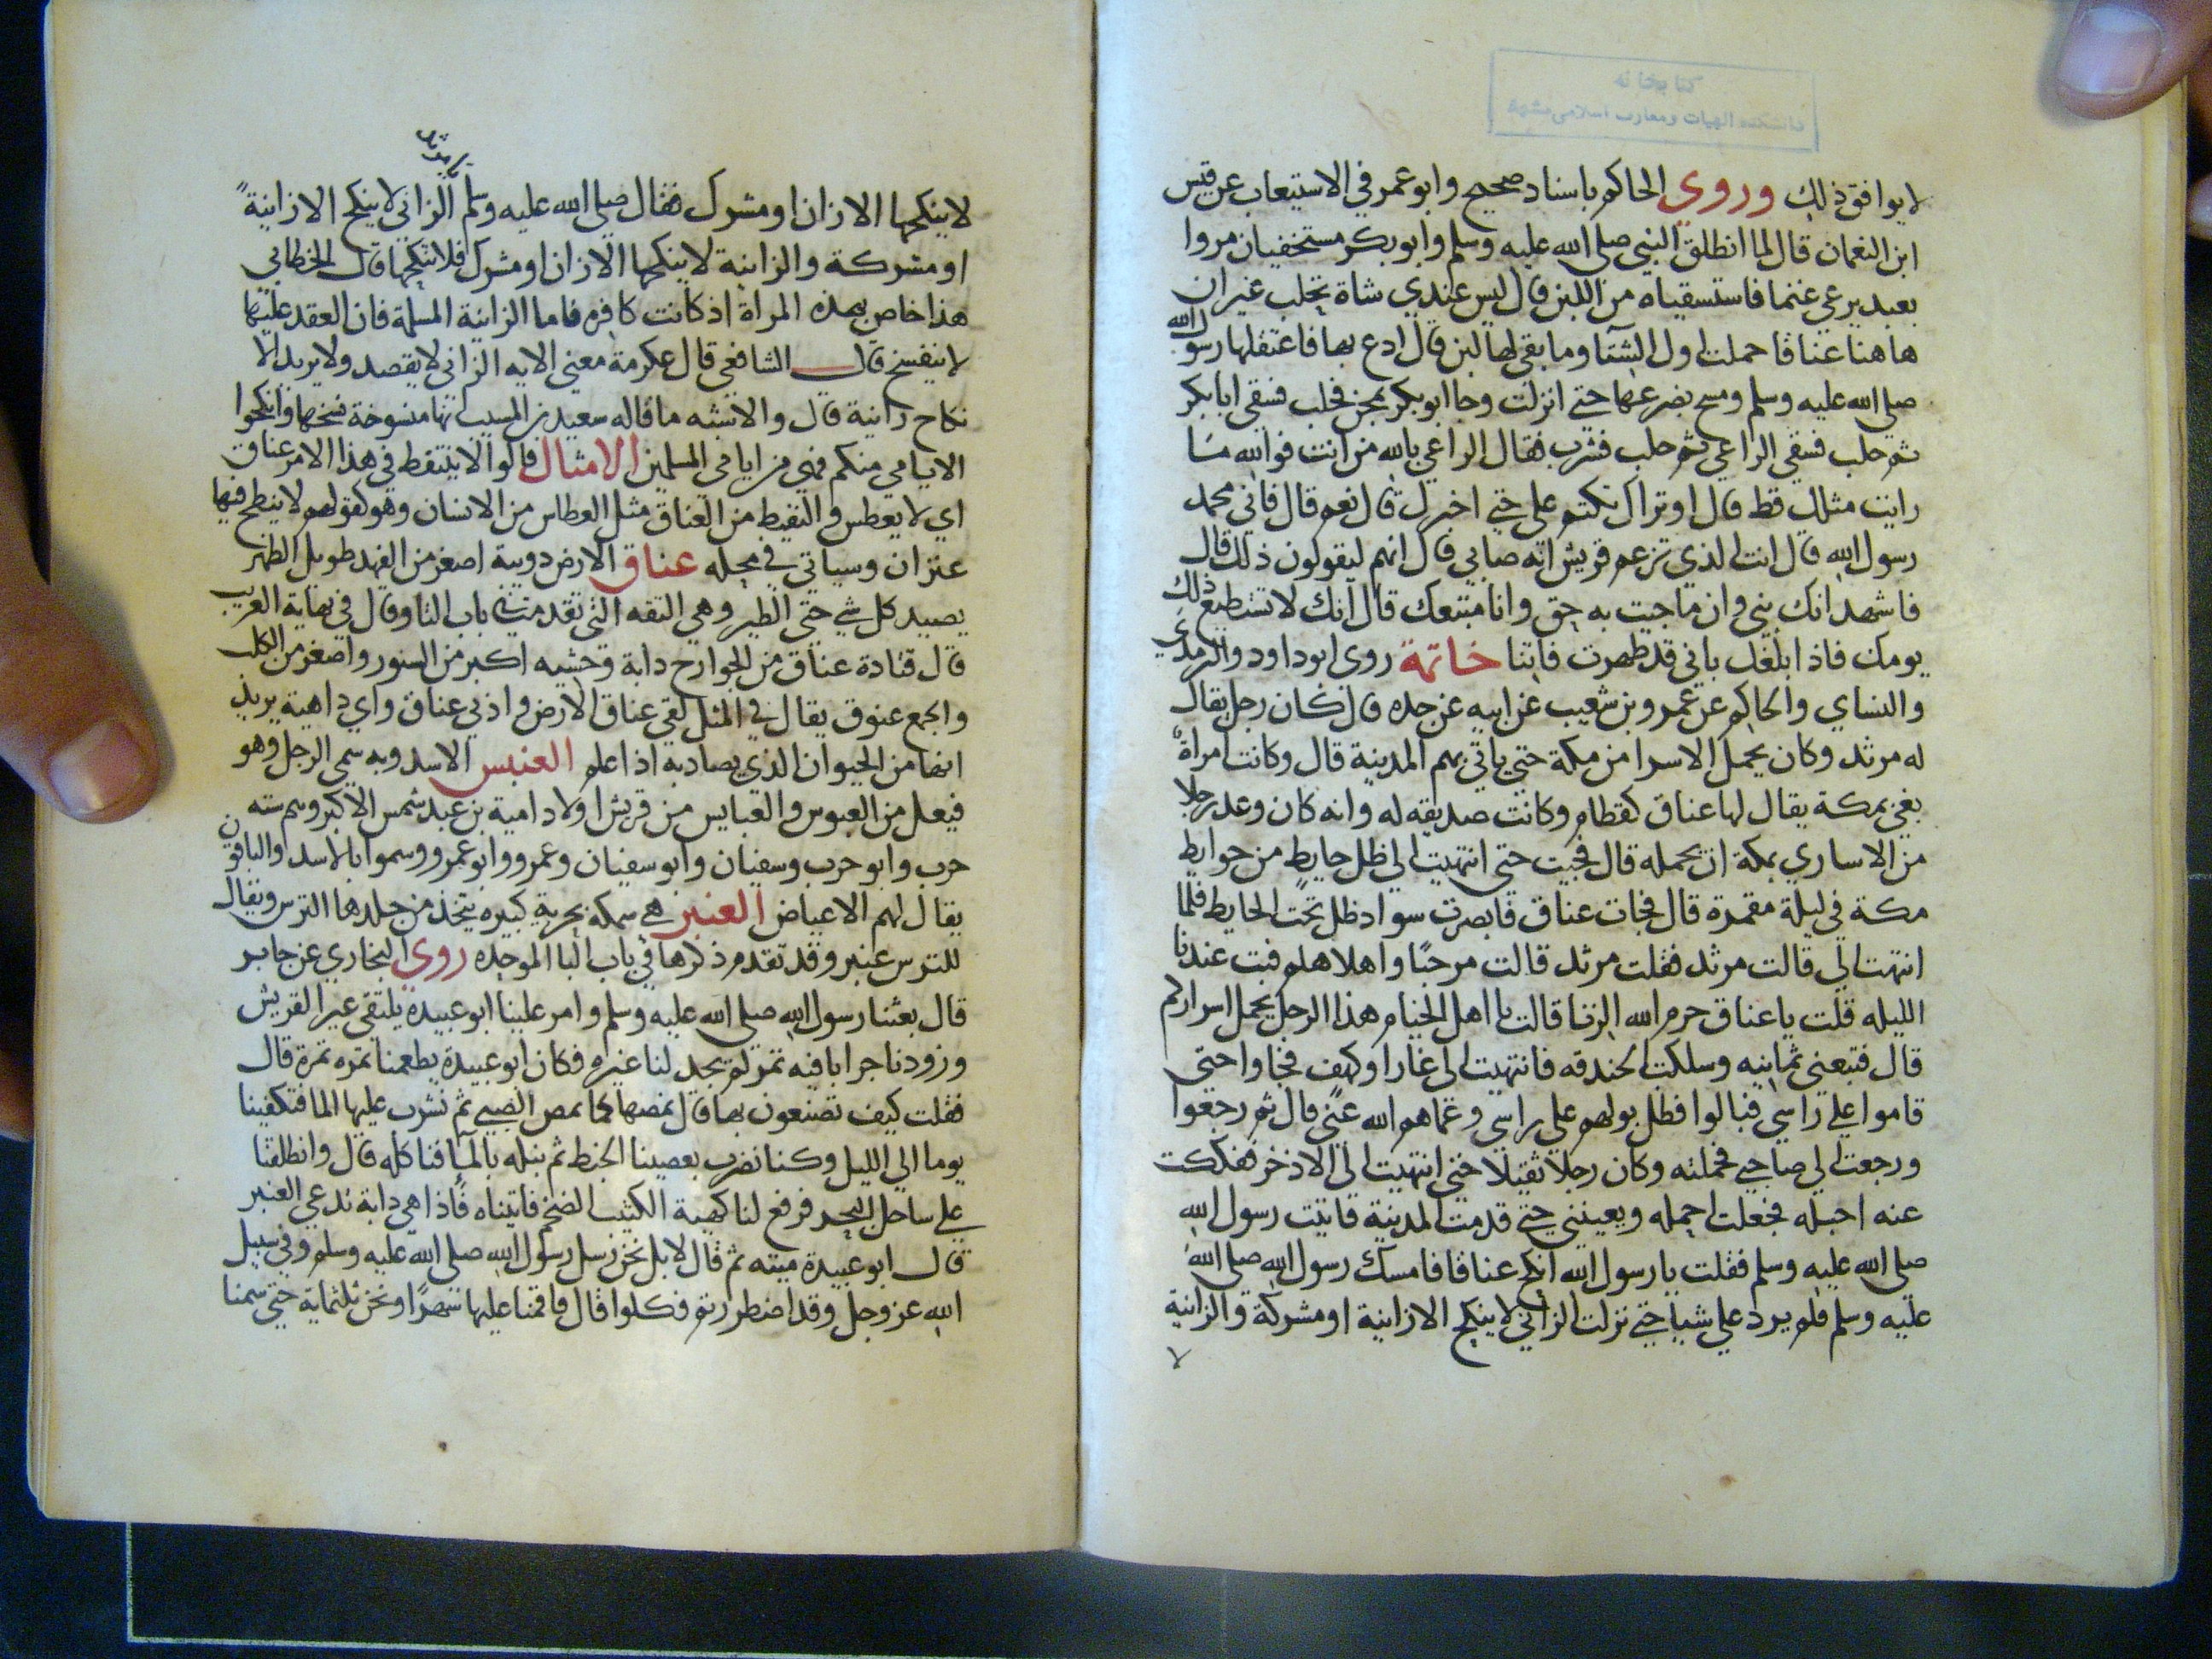 كتابخانه
دانشكده الهيات ومعارف اسلامی مشهد
لا يوافق ذلك وروي الحاكم باسناد صحيح وابو عمر في الاستيعاب عن قيس
ابن النعمان قال لما انطلق النبي صلى الله عليه وسلم وابو بكر مستخفيان مروا
بعبد يرعى غنما فاستسقياه من اللبن قال ليس عندي شاة تحلب غير ان
هاهنا عناقا حملت اول الشتا وما بقي لها لبن قال ادع بها فاعتقلها رسول الله
صلى الله عليه وسلم ومسح بضرعها حتى انزلت وجا ابو بكر بمجن فحلب فسقى ابا بكر
ثم حلب فسقى الراعي ثم حلب فشرب فقال الراعي بالله من انت فوالله ما
رايت مثلك قط قال او تراك تكتم علي حتى اخبرك قال نعم قال فاني محمد
رسول الله قال انت الذي تزعم قريش انه صابي قال انهم ليقولون ذلك قال
فاشهد انك نبي وان ما جيت به حق وانا متبعك قال انك لا تستطيع ذلك
يومك فاذا بلغك باني قد ظهرت فاتنا خاتمة روى ابو داود والترمذي
والنساي والحاكم عن عمرو بن شعيب عن ابيه عن جده قال كان رجل يقال
له مرثد وكان يحمل الاسرا من مكة حتى ياتي بهم المدينة قال وكانت امراة
بغي بمكة يقال لها عناق كقطام وكانت صديقه له وانه كان وعد رجلا
من الاساري بمكة ان يحمله قال فجيت حتى انتهيت الى ظل حايط من حوايط
مكة في ليلة مقمرة قال فجات عناق فابصرت سواد ظل تحت الحايط فلما
انتهت الي قالت مرثد فقلت مرثد قالت مرحبا واهلا هلم فبت عندنا
الليله قلت يا عناق حرم الله الزنا قالت يا اهل الخيام هذا الرجل يحمل اسراكم
قال فتبعني ثمانيه وسلكت الخندقه فانتهيت الى غار او كهف فجاوا حتى
قاموا على راسي فبالوا فظل بولهم على راسي وعماهم الله عني قال ثم رجعوا
ورجعت الى صاحبي فحملته وكان رجلا ثقيلا حتى انتهيت الى الاذخر ففككت
عنه احبله فجعلت احمله ويعينني حتى قدمت المدينة فاتيت رسول الله
صلى الله عليه وسلم فقلت يا رسول الله انكح عناقا فامسك رسول الله صلى الله
عليه وسلم فلم يرد علي شيا حتى نزلت الزاني لا ينكح الا زانية او مشركة والزانية
لا
لا ينكحها الا زان او مشرك فقال صلى الله عليه وسلم الزاني لا ينكح الا زانية
او مشركة والزانية لا ينكحها الا زان او مشرك فلا تنكحها قال الخطابي
هذا خاص بهذه المراة اذ كانت كافرة فاما الزانية المسلمة فان العقد عليها
لا ينفسخ قال الشافعي قال عكرمة معنى الايه الزاني لا يقصد ولا يريد الا
نكاح زانية قال والاشبه ما قاله سعيد بن المسيب انها منسوخة نسخها وانكحوا
الايامي منكم فهي من ايامي المسلمين الامثال قالوا لا ينتفط في هذا الامر عناق
اي لا يعطس والنفيط من العناق مثل العطاس من الانسان وهو كقولهم لا ينتطح فيها
عنزان وسياتي في محله عناق الارض دويبة اصغر من الفهد طويل الظهر
يصيد كل شي حتى الطير وهي التفه التي تقدمت في باب التا وقال في نهاية الغريب
قال قتادة عناق من الجوارح دابة وحشيه اكبر من السنور واصغر من الكلب
والجمع عنوق يقال في المثل لقي عناق الارض واذني عناق واي داهية يريد
انها من الحيوان الذي يصاد به اذا علم العنبس الاسد وبه سمي الرجل وهو
فيعل من العبوس والعبايس من قريش اولاد امية بن عبد شمس الاكبر وهم سته
حرب وابو حرب وسفيان وابو سفيان وعمرو وابو عمرو وسموا بالاسد والباقون
يقال لهم الاعياص العنبر هي سمكه بحرية كبيره يتخذ من جلدها الترس ويقال
للترس عنبر وقد تقدم ذكرها في باب البا الموحده روي البخاري عن جابر
قال بعثنا رسول الله صلى الله عليه وسلم وامر علينا ابو عبيده يلتقي عير القريش
وزودنا جرابا فيه تمر لم يجد لنا غيره فكان ابو عبيدة يطعمنا تمره تمرة قال
فقلت كيف تصنعون بها قال نمصها كما يمص الصبي ثم نشرب عليها الما فتكفينا
يوما الى الليل وكنا نضرب بعصينا الخبط ثم نبله بالما فناكله قال وانطلقنا
على ساحل البحر فرفع لنا كهية الكثيب الضخم فاتيناه فاذا هي دابة تدعى العنبر
قال ابو عبيدة ميته ثم قال لا بل نحن رسل رسول الله صلى الله عليه وسلم وفي سبيل
الله عز وجل وقد اضطررتم فكلوا قال فاقمنا عليها شهرا ونحن ثلثماية حتى سمنا